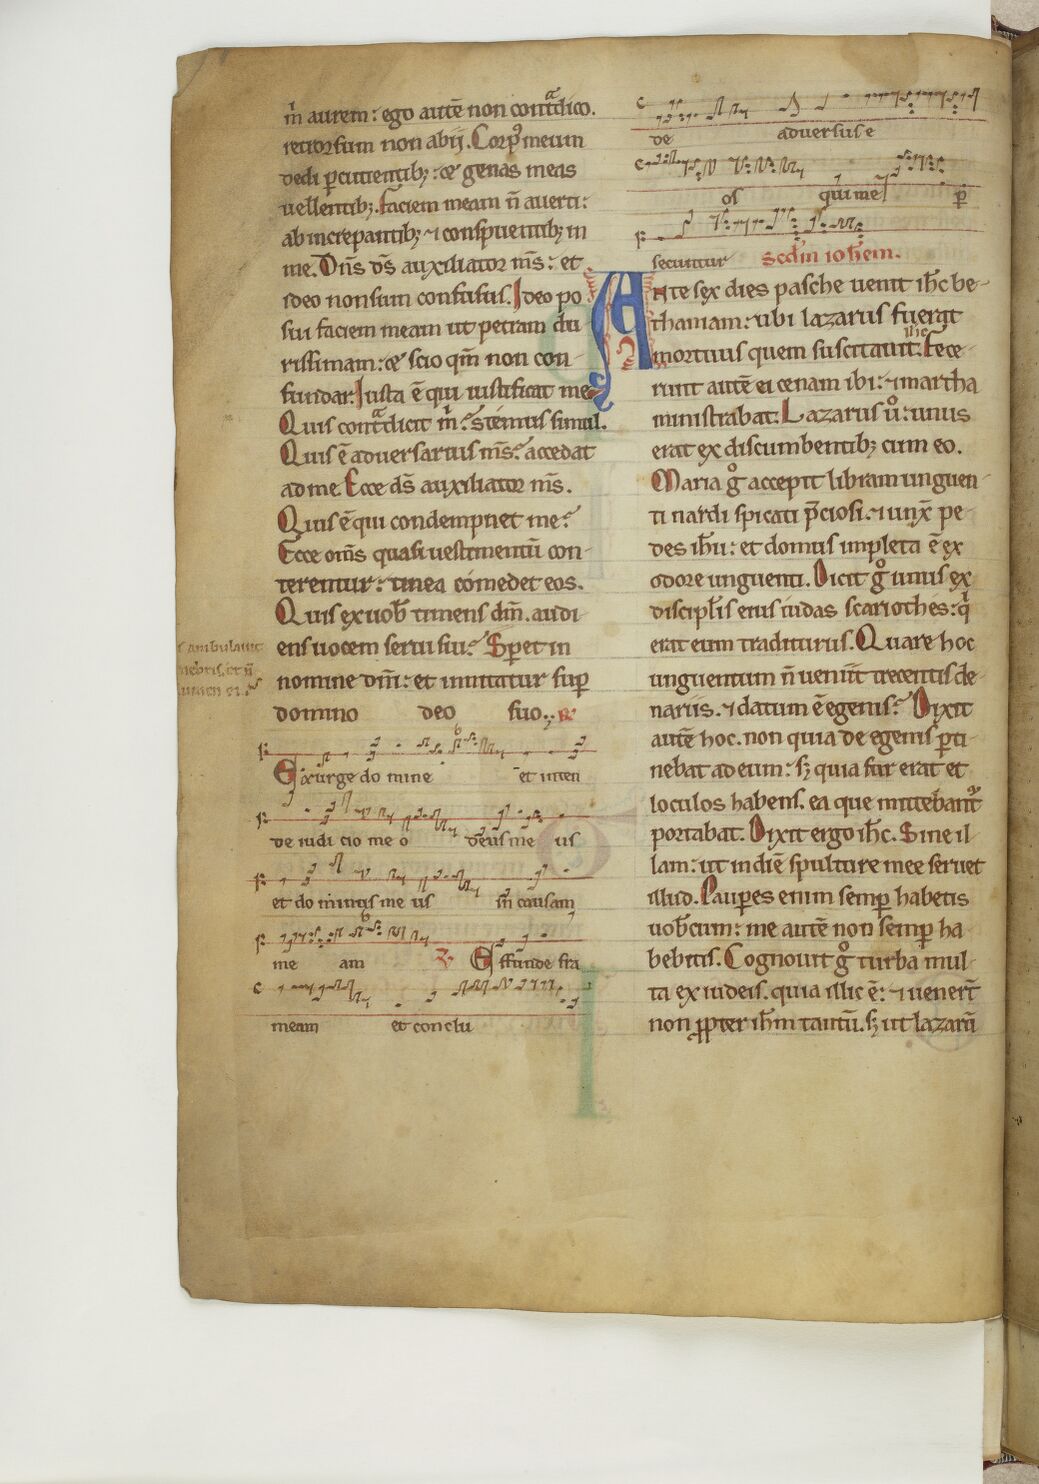 m̉ aurem: ego autē non contᵃdico.
retrorsum non abij. Corpꝰ meum
dedi ꝑcutientibꝫ: ⁊ genas meas
uellentibꝫ. Faciem meam n̄ auerti:
ab increpantibꝫ ⁊ conspuentibꝫ in
me. Dn̄s ds̄ auxiliator ms̄: et
ideo non sum confusus. Ideo po
sui faciem meam ut petram du
rissimam: ⁊ scio qm̄ non con-
fundar. Iuxta ē qui iustificat me
Quis contᵃdicit m̉? Stemus simul.
Quis ē aduersarius ms̄? accedat
ad me. Ecce ds̄ auxiliator ms̄.
Quis ē qui condempnet me?
Ecce om̄s quasi uestimentū con-
terentur: tinea comedet eos.
Quis ex uob̄ timens dm̄. audi-
ens uocem serui sui? Speret in
nomine dn̄i: et innitatur suꝑ
domino deo suo.
s ambulauit
nebris. et n̄
lumen ei
Exurge domine et inten
de iudicio meo deus meus
et dominus meus in causam
meam ℣ Effunde fra
meam et conclu
de aduersus e
os qui me ꝑ
secuntur Scd̄m ioh̄em.
Ante sex dies pasche uenit ih̄c be-
thaniam: ubi lazarus fuerat
mortuus quem suscitauit ih̄c. Fece-
runt autē ei cenam ibi: ⁊ martha
ministrabat. Lazarus ů: unus
erat ex discumbentibꝫ cum eo.
Maria gͦ accepit libram unguen-
ti nardi spicati p̄ciosi: ⁊ unx̄ pe-
des ih̄u: et domus impleta ē ex
odore unguenti. Dicit gͦ unus ex
discipl̄is eius iudas scariothes: qͥ
erat eum traditurus. Quare hoc
unguentum n̄ ueniit trecentis de-
nariis. ⁊ datum ē egenis? Dixit
autē hoc. non quia de egenis ꝑti-
nebat ad eum: sꝫ quia fur erat et
loculos habens. ea que mittebant᷑
portabat. Dixit ergo ih̄c. Sine il-
lam: ut in diē sepulture mee seruet
illud. Pauꝑes enim semꝑ habetis
uob̄cum: me autē non semꝑ ha
bebitis. Cognouit gͦ turba mul-
ta ex iudeis. quia illic ē: ⁊ uenerт̄
non ꝓpter ih̄m tantū. sꝫ ut lazarū